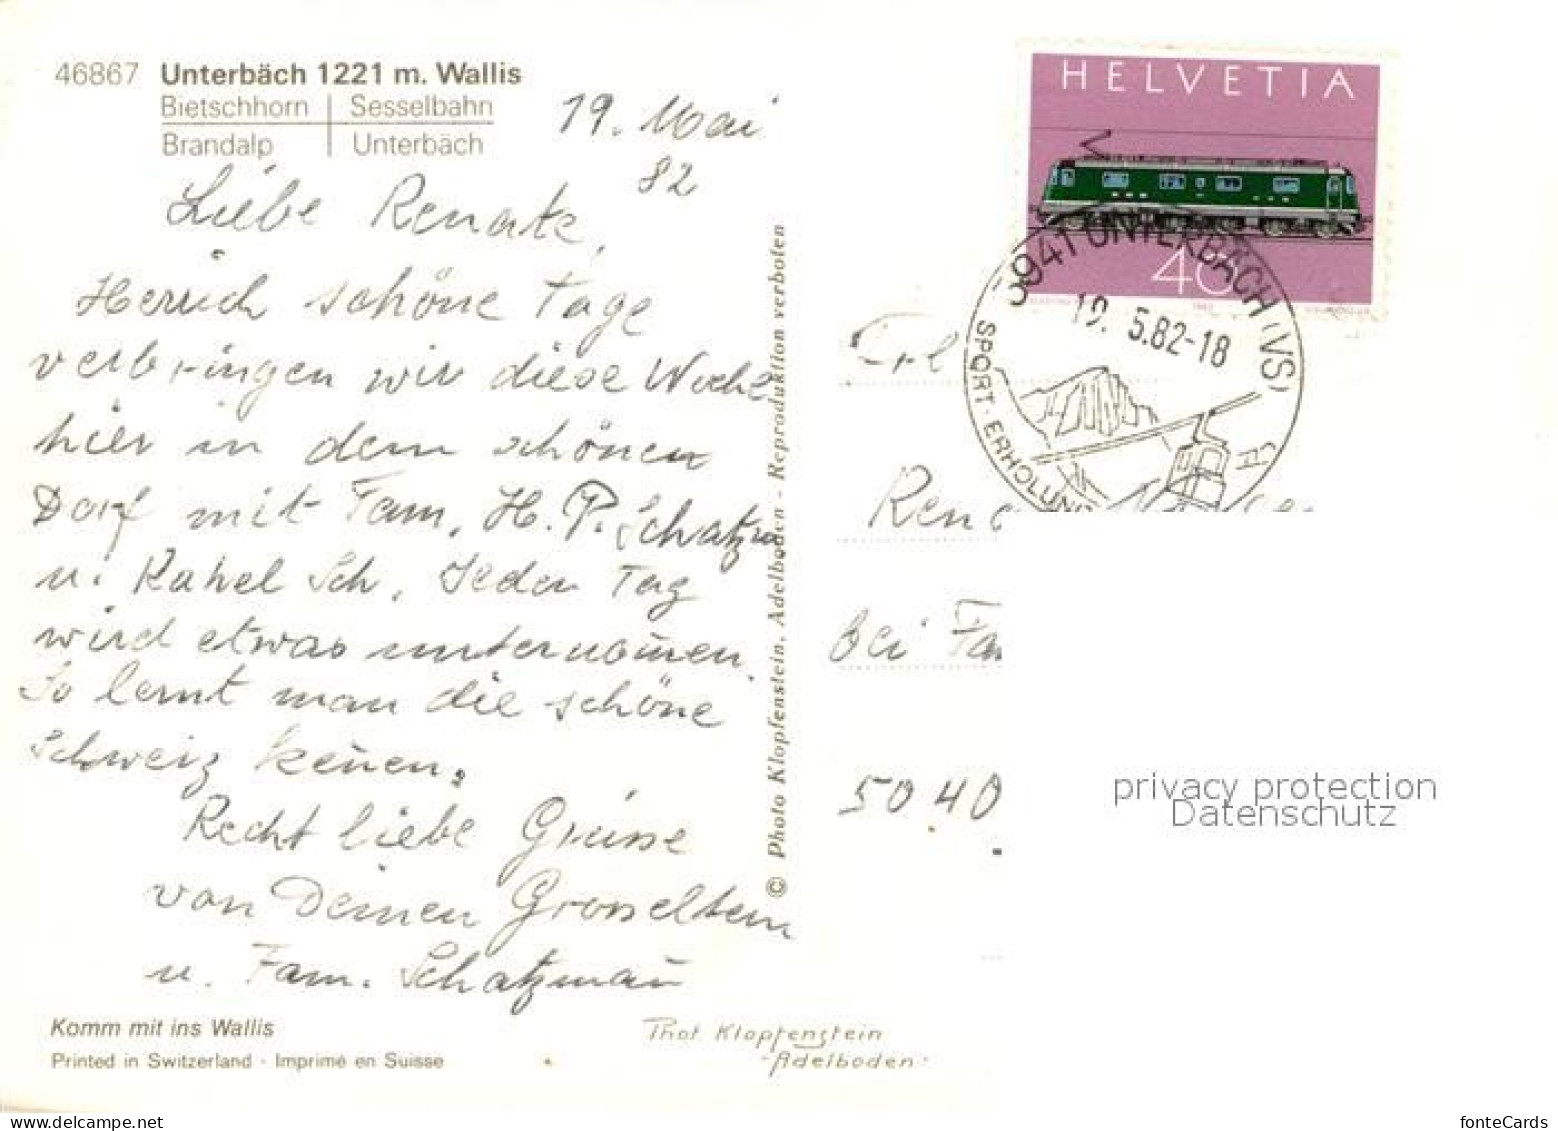 46867 Unterbäch 1221 m. Wallis
Bietschhorn | Sesselbahn
Brandalp | Unterbäch
19. Mai
82
Liebe Renate,
Herrlich schöne Tage
verbringen wir diese Woche
hier in dem schönen
Dorf mit Fam. H. P. Schatzm.
u. Rahel Sch. Jeden Tag
wird etwas unternom̄en.
So lernt man die schöne
Schweiz keñen.
Recht liebe Grüsse
von Deinen Grosseltern
u. Fam. Schatzmañ
Komm mit ins Wallis
Printed in Switzerland · Imprimé en Suisse
Phot. Klopfenstein
Adelboden
© Photo Klopfenstein, Adelboden - Reproduktion verboten
HELVETIA
40
3941 UNTERBÄCH (VS)
19. 5.82-18
SPORT · ERHOLUNG
Frl
Rena
bei Fam
5040
privacy protection
Datenschutz
fonteCards